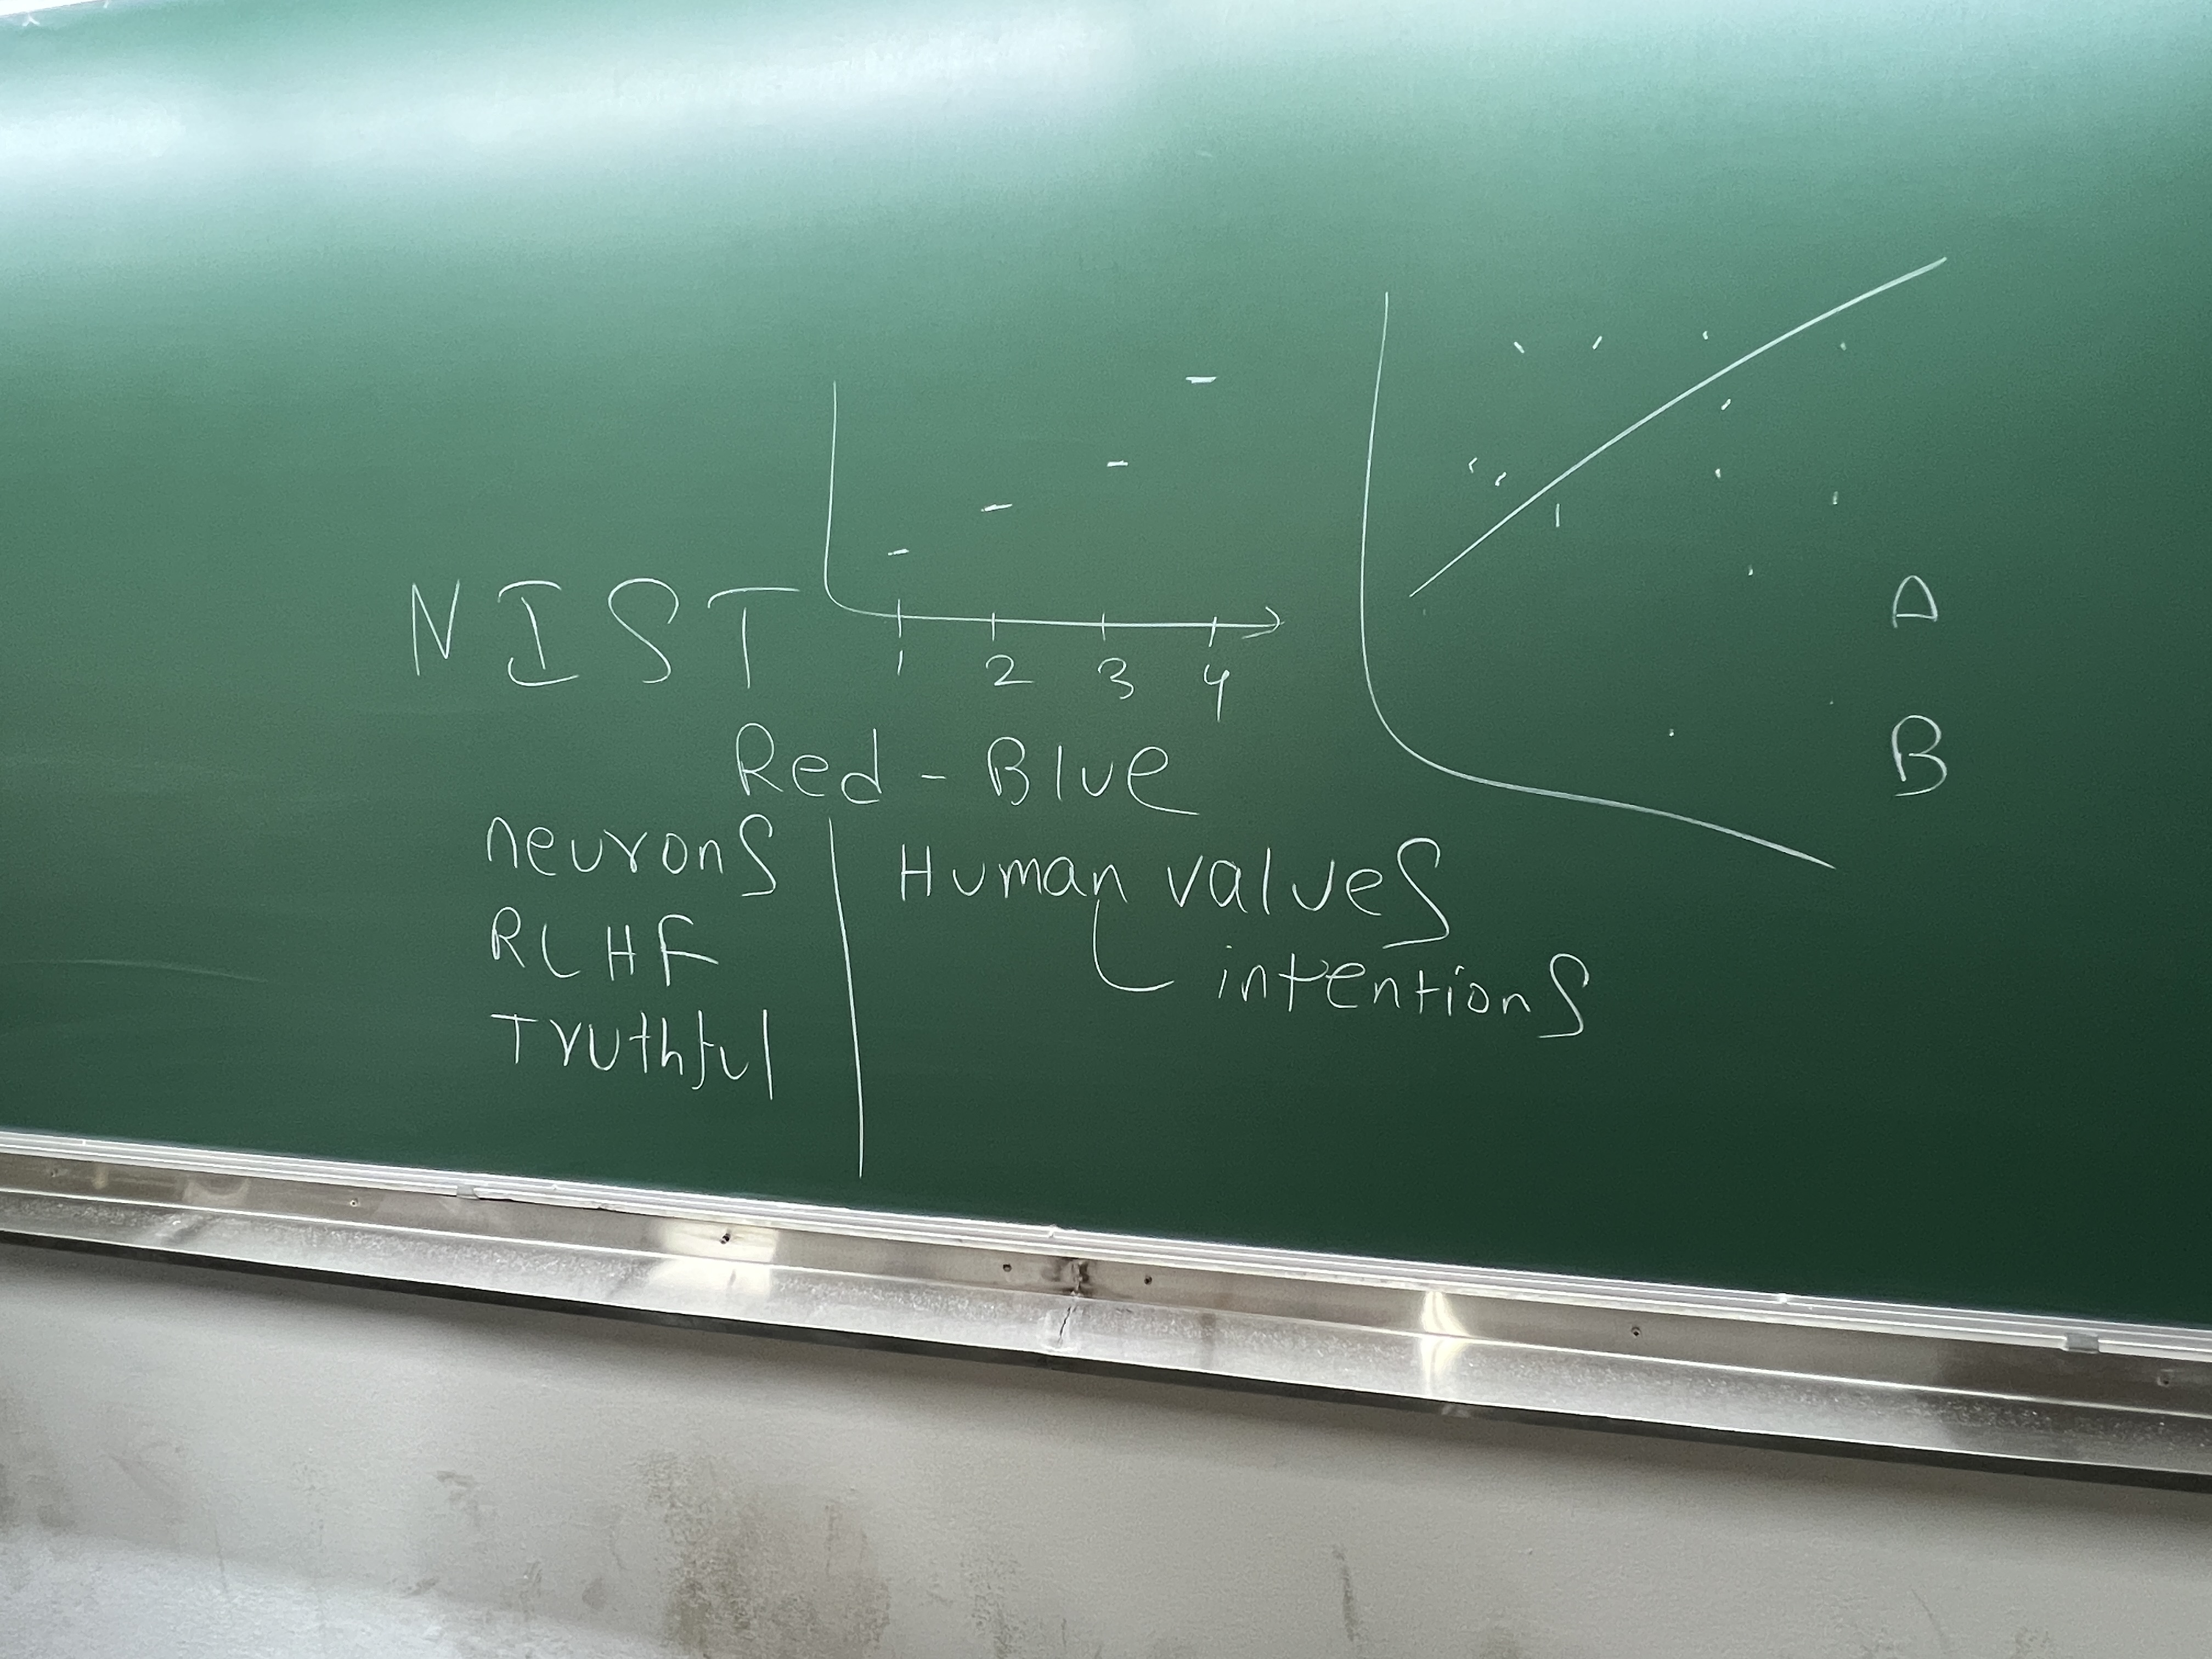 NIST
1 2 3 4
A
B
Red - Blue
neurons
RLHF
Truthful
Human values
intentions